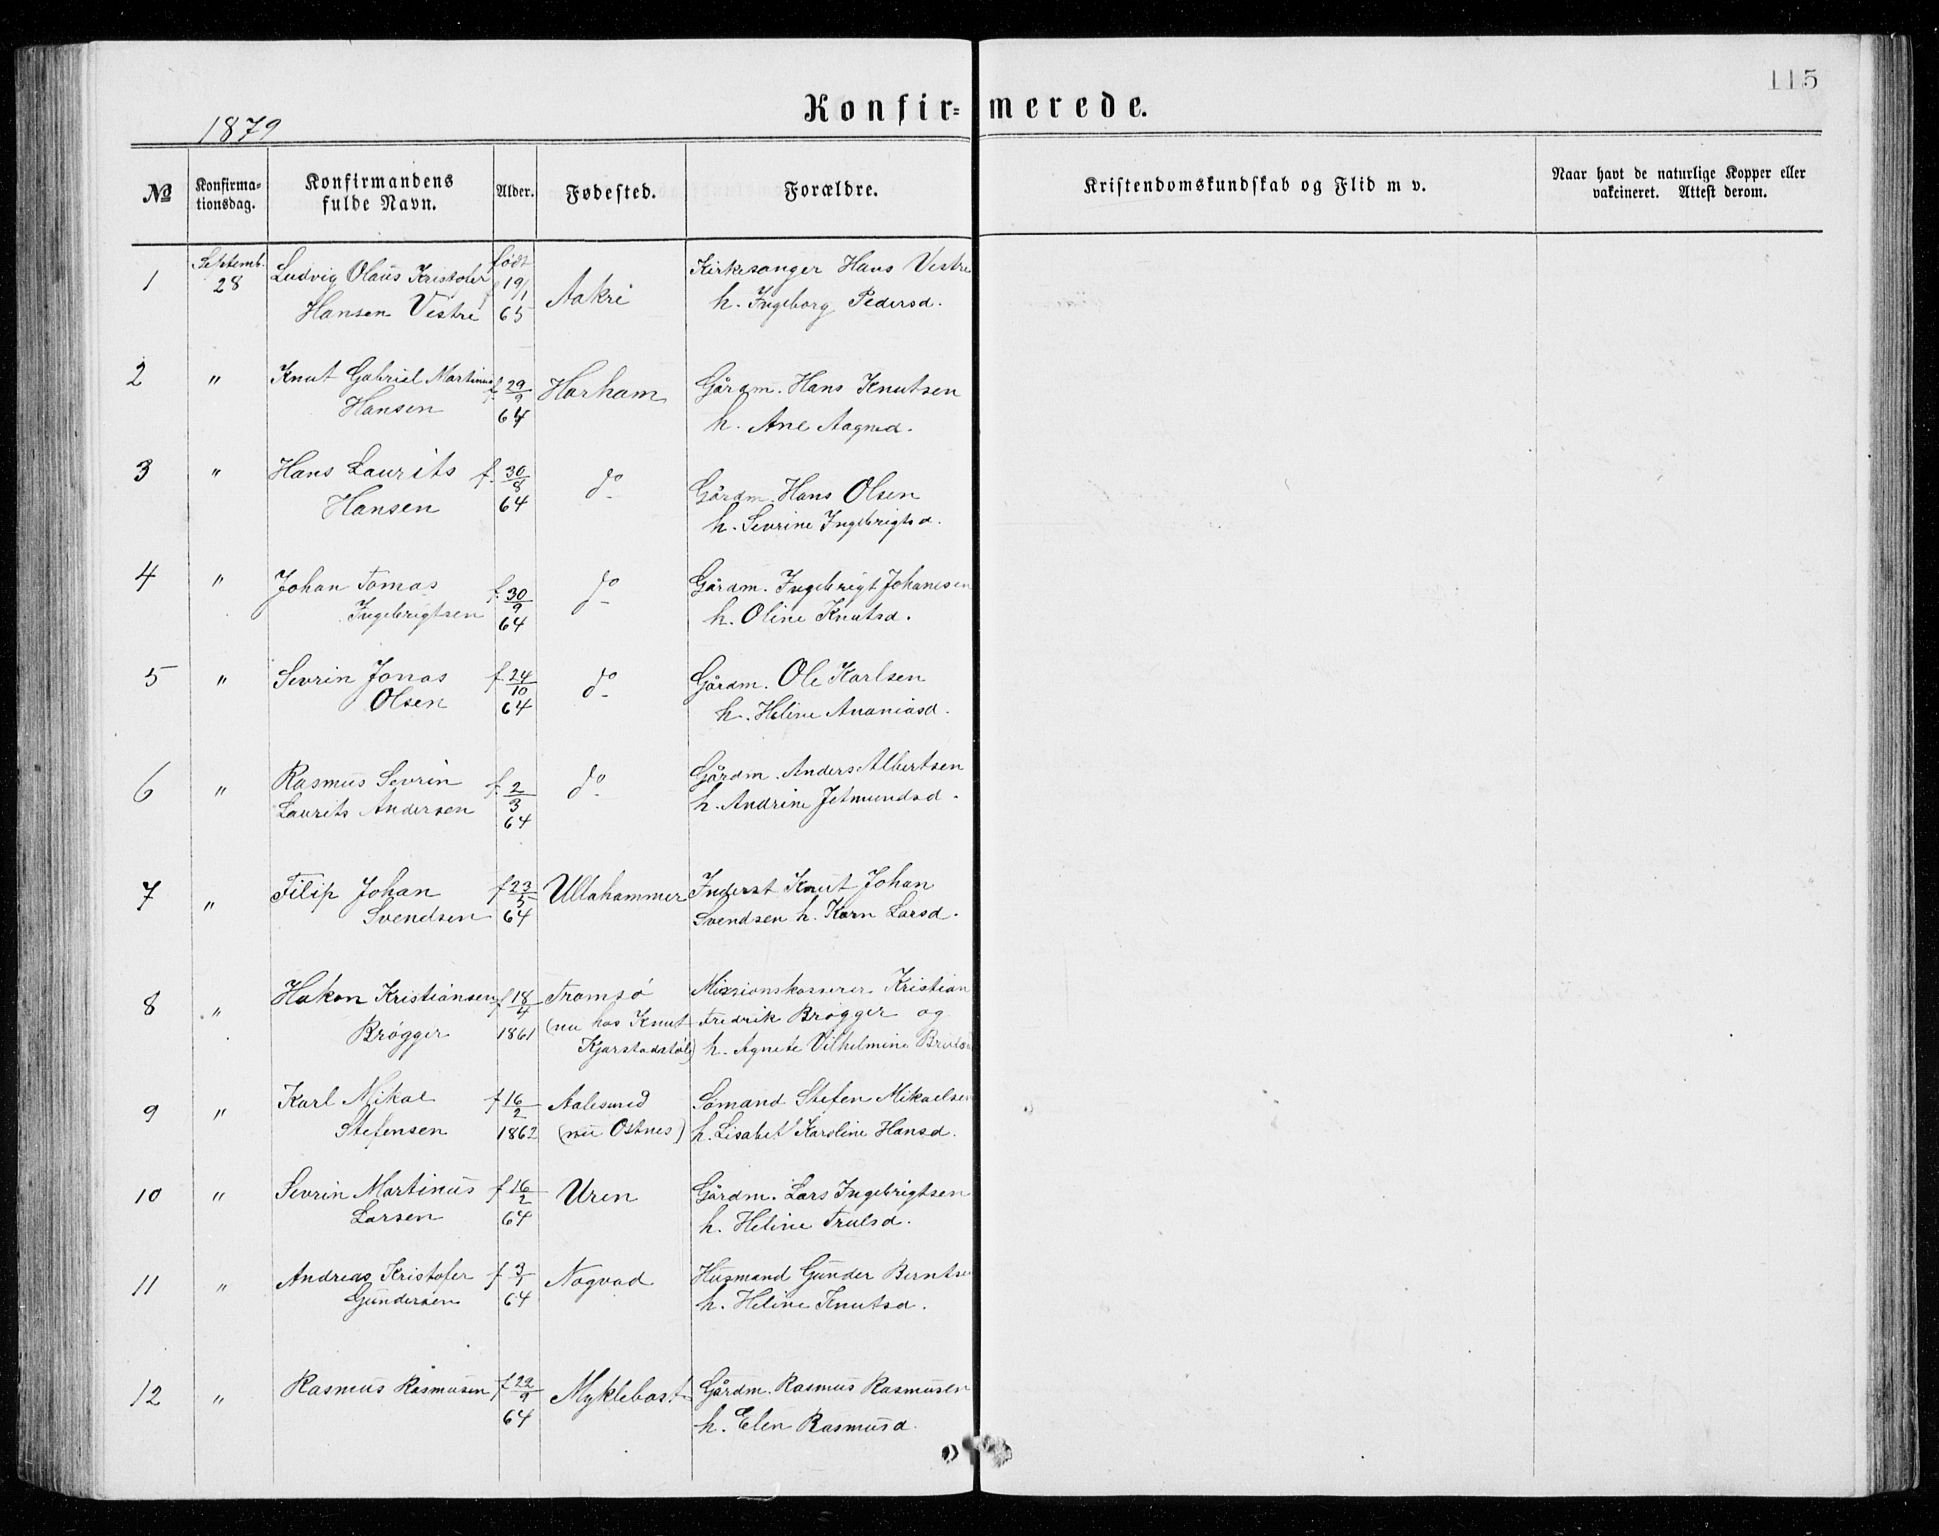 115
Konfir=merede.
1879
№
Konfirma-
tionsdag.
Konfirmandens
fulde Navn.
Alder.
Fødested.
Forældre.
Kristendomskundskab og Flid m v.
Naar havt de naturlige Kopper eller
vakcineret. Attest derom.
1 Septemb. 28 Ludvig Olaus Kristofer født 19/1 65 Aakre Kirkesanger Hans Vestre
Hansen Vestre h. Ingeborg Pedersd.
2 " Knut Gabriel Martinus f. 29/9 64 Harham Gårdm. Hans Knutsen
Hansen h. Ane Aagned.
3 " Hans Laurits f. 30/8 64 do Gårdm. Hans Olsen
Hansen h. Sevrine Ingebrigtsd.
4 " Johan Tomas f. 30/9 64 do Gårdm. Ingebrigt Johanesen
Ingebrigtsen h. Oline Knutsd.
5 " Sevrin Jonas f. 24/10 64 do Gårdm. Ole Karlsen
Olsen h. Heline Ananiasd.
6 " Rasmus Sevrin f. 2/3 64 do Gårdm. Anders Albertsen
Laurits Andersen h. Andrine Jetmundsd.
7 " Filip Johan f. 23/5 64 Ullahammer Inderst Knut Johan
Svendsen Svendsen h. Karn Larsd.
8 " Hakon Kristiansen f. 18/4 1861 Tromsø Missionskasserer Kristian
Brøgger (nu hos Knut Fredrik Brøgger og
Kjerstadstøle) h. Agnete Vilhelmine
9 " Karl Mikal f. 16/2 1862 Aalesund Sømand Stefen Mikaelsen
Stefensen (nu Østnes) h. Lisabet Karoline Hansd.
10 " Sevrin Martinus f. 16/2 64 Uren Gårdm. Lars Ingebrigtsen
Larsen h. Heline Trulsd.
11 " Andreas Kristofer f. 3/1 64 Nogvad Husmand Gunder Berntsen
Gundersen h. Heline Knutsd.
12 " Rasmus Rasmusen f. 22/9 64 Myklebost Gårdm. Rasmus Rasmusen
h. Elen Rasmusd.